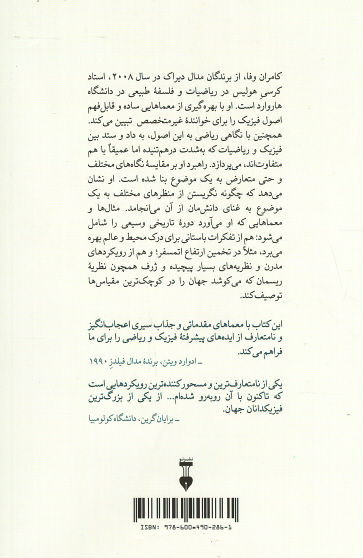 کامران وفا، از برندگان مدال دیراک در سال ۲۰۰۸، استاد
کرسی هولیس در ریاضیات و فلسفهٔ طبیعی در دانشگاه
هاروارد است. او با بهره‌گیری از معماهایی ساده و قابل‌فهم
اصول فیزیک را برای خوانندهٔ غیرمتخصص تبیین می‌کند.
همچنین با نگاهی ریاضی به این اصول، به داد و ستد بین
فیزیک و ریاضیات که به‌شدت درهم‌تنیده اما عمیقاً با هم
متفاوت‌اند، می‌پردازد. راهبرد او بر مقایسهٔ نگاه‌های مختلف
و حتی متعارض به یک موضوع بنا شده است. او نشان
می‌دهد که چگونه نگریستن از منظرهای مختلف به یک
موضوع به غنای دانش‌مان از آن می‌انجامد. مثال‌ها و
معماهایی که او می‌آورد دورهٔ تاریخی وسیعی را شامل
می‌شود: هم از تفکرات باستانی برای درک محیط و عالم بهره
می‌برد، مثلاً در تخمین ارتفاع اتمسفر؛ و هم از رویکردهای
مدرن و نظریه‌های بسیار پیچیده و ژرف همچون نظریهٔ
ریسمان که می‌کوشد جهان را در کوچک‌ترین مقیاس‌ها
توصیف‌کند.
این کتاب با معماهای مقدماتی و جذاب سیری اعجاب‌انگیز
و نامتعارف از ایده‌های پیشرفتهٔ فیزیک و ریاضی را برای ما
فراهم می‌کند.
ـ ادوارد ویتن، برندهٔ مدال فیلدز ۱۹۹۰
یکی از نامتعارف‌ترین و مسحورکننده‌ترین رویکردهایی است
که تاکنون با آن روبه‌رو شده‌ام... از یکی از بزرگ‌ترین
فیزیکدانان جهان.
ـ برایان‌گرین، دانشگاه کولومبیا
نشرنو
ISBN: 978-600-490-286-1